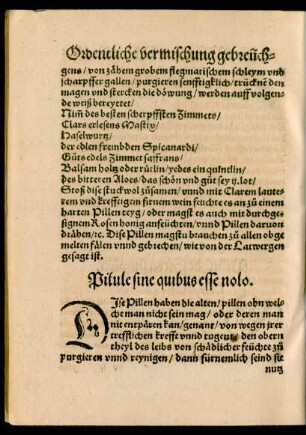 Ordentliche vermischung gebreüch-
gens / von zähem grobem flegmatischem schleym vnd
scharpffer gallen / purgieren senfftigklich / trücknẽ den
magen vnd stercken die döwung / werden auff volgen-
de weiß bereyttet /
Nim̃ des besten scherpffsten Zimmets /
Clars erlesens Mastix /
Haselwurtz /
der edlen freündden Spicanardi /
Gůts edels Zimmet saffrans /
Balsam holtz oder rütlin / yedes ein quintlin /
des bitteren Aloes / das schön vnd gůt sey ij. lot /
Stoß dise stuck wol zůsamen / vnnd mit Clarem laute-
rem vnd krefftigen firnem wein feüchte es an zů einem
harten Pillen teyg / oder magst es auch mit durchge-
signem Rosen honig anfeüchten / vnnd Pillen daruon
dräben / ec. Dise Pillen magstu brauchen zů allen obge
melten fälen vnnd gebrechen / wie von der Latwergen
gesagt ist.
Pitule sine quibus esse nolo.
Dise Pillen haben die alten / pillen ohn wel-
che man nicht sein mag / oder deren man
nie entpären kan / genant / von wegen jrer
trefflichen krefft vnnd tugent / den obern
theyl des leibs von schädlicher feüchte zů
purgieren vnnd reynigen / dann fürnemlich seind sie
nutz